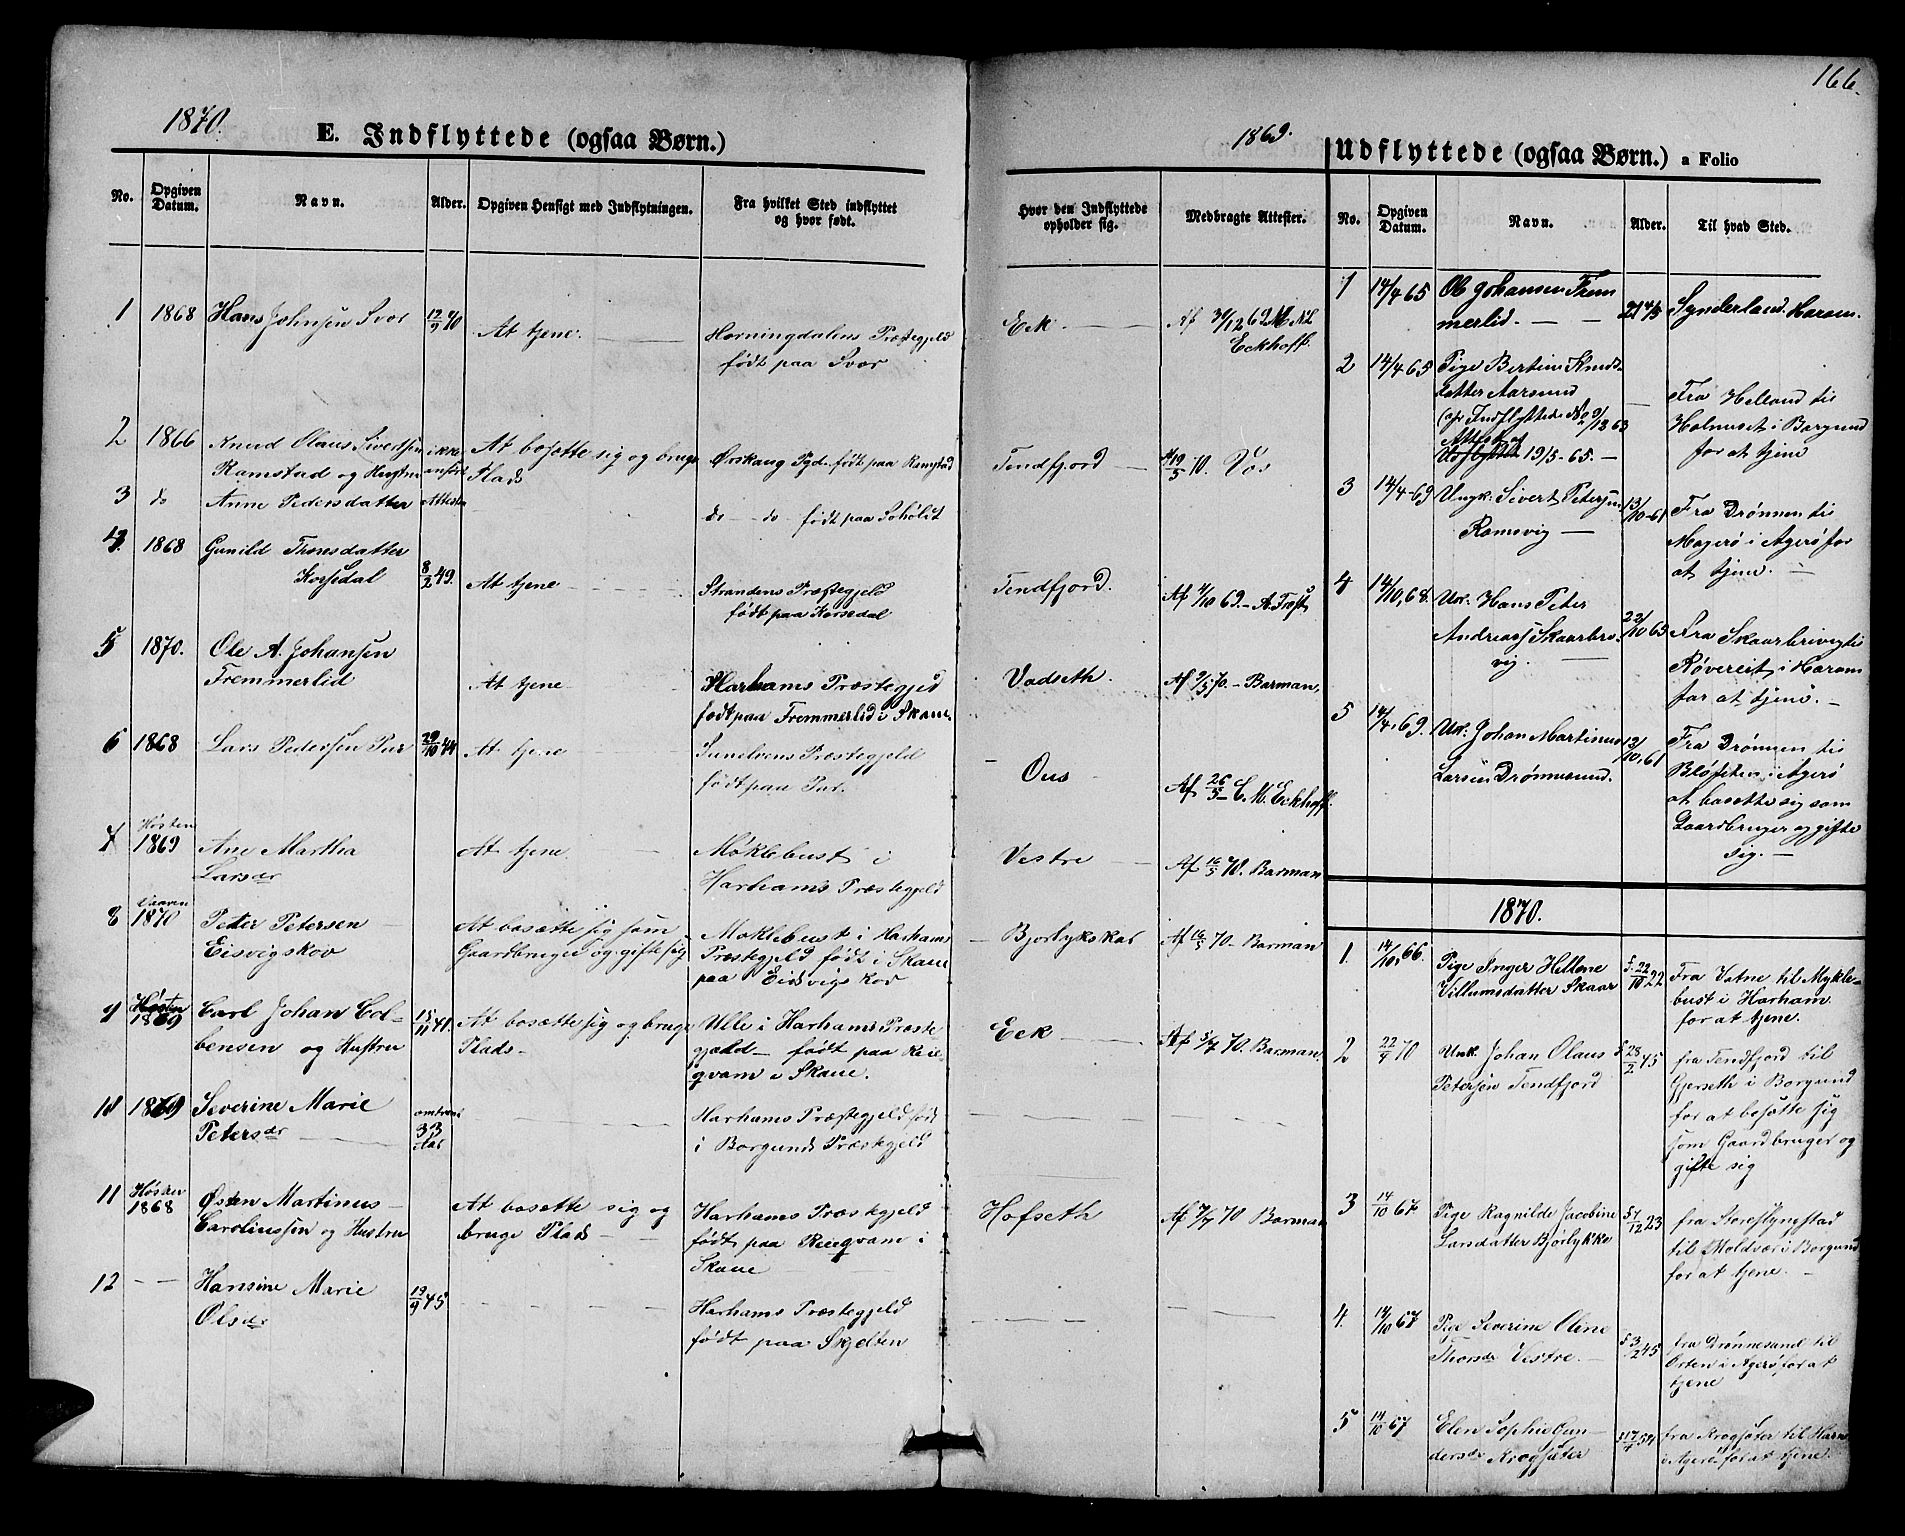 166.
1870.
E. Indflyttede (ogsaa Børn.)
No.
Opgiven Datum.
Navn.
Alder.
Opgiven Hensigt med Indflytningen.
Fra hvilket Sted indflyttet og hvor født.
1 1868 Hans Johnsen Svor 12/9 40 At tjene. Horningdalens Præstegjeld
født paa Svor
2 1866 Knud Olaus Sivertsen ikke At bosætte sig og bruge Ørskaug Pgd. født paa Ramstad
Ramstad og Hustru anført Plads
3 do Anne Pedersdatter Attesta do do født paa Soholt
4. 1868 Gunild Thronsdatter
Korsedal 8/2 49. At tjene Strandens Præstegjeld
født paa Korsedal
5 1870. Ole A. Johansen
Fremmerlid At tjene Harhams Præstegjeld
født paa Fremmerlid i Skaue.
6 1868 Lars Pedersen Pur 29/10 44 At tjene Sunelvens Præstegjeld
født paa Pur.
7 Høsten
1869 Ane Martha At tjene. Møklebust i
Larsdr Harhams Præstegjeld
8 Vaaren
1870 Peter Petersen At bosætte sig som Møklebust i Harhams
Eisvigskov Gaardbruger og gifte sig Præstegjeld født i Skaue
paa Eidsvigskov
9 Høsten
1869 Carl Johan Col- 15/11 41. At bosætte sig og bruge Ulle i Harhams Præste
bensen og Hustru Plads gjæld født paa Reie
qvam i Skaue.
10 1869 Severine Marie omtrent Harhams Præstegjeld født
Petersdr 33 Aar i Borgunds Præstegjeld
11 Høsten
1868 Østen Martinus At bosætte sig og Harhams Præstegjeld
Caroliussen og Hustru bruge Plads født paa Reieqvam i
Skaue
12 Hansine Marie
Olsdr 19/9 45 Harhams Præstegjeld
født paa Skjelten
Hvor den Indflyttede opholder sig.
Medbragte Attester.
Eck Af 30/12 69
Eckhoff.
Tendfjord 19/5 70. Vos
Tendfjord. Af 4/10 69. A. Trøst
Vadseth. Af 9/5 70. Barman,
Ous Af 26/5 C. M. Eckhoff.
Vestre Af 16/5 70. Barman
Bjorlykskar Af 16/5 70. Barman
Eck Af 5/7 70. Barman,
Hofseth Af 7/7 70 Barman
1869.
Udflyttede (ogsaa Børn.) a Folio
No.
Opgiven Datum.
Navn.
Alder.
Til hvad Sted.
1 14/4 65 Ole Johansen Frem
merlid. Synderland. Haram.
2 14/4 65 Pige Bertine Knuds-
datter Aarsund Fra Helland til
19/5-65. Holmeset i Borgund
for at tjene
3 14/4-69 Ungk. Sivert Petersen 13/10-61 Fra Drønnen til
Ramsvig Magerø i Agerø for
at tjene.
4 14/10,68. Uk. Hans Peter
Andreass Skaarbre 22/10 65 Fra Skaarbrevig til
vig. Røvereit i Haram
for at tjene.
5 14/4,69. Uk: Johan Martinus 13/10,61 Fra Drønnen til
Larsen Drønnesund. i Agerø
at bosette sig som
Gaardbruger og gifte
sig.
1870.
1. 14/10,66 Pige Inger Hellene f. 22/10 22 Fra Vatne til Mykle-
Villumsdatter Skaar bust i Harham.
for at tjene.
2 22/9 70 Unk. Johan Olaus f 28/2 45 fra Tendfjord til
Petersen Tendfjord Gjerseth i Borgund
for at bosætte sig
som Gaardbruger og
gifte sig
3 14/10 67 Pige Ragnilde Jacobine f 7/12 23 fra Storeslyngstad
Larsdatter Bjørlykke til Moldvær i Borgund
for at tjene.
4. 14/10 67 Pige Severine Oline f 3/2 45 fra Drønnesund til
Thorsdr Vestre. Orten i Agerø for at
tjene
5 14/10 67 Elen Sophie Gun
dersdr Krogsæter fra Krogsæter til
i Agerø for at tjene.